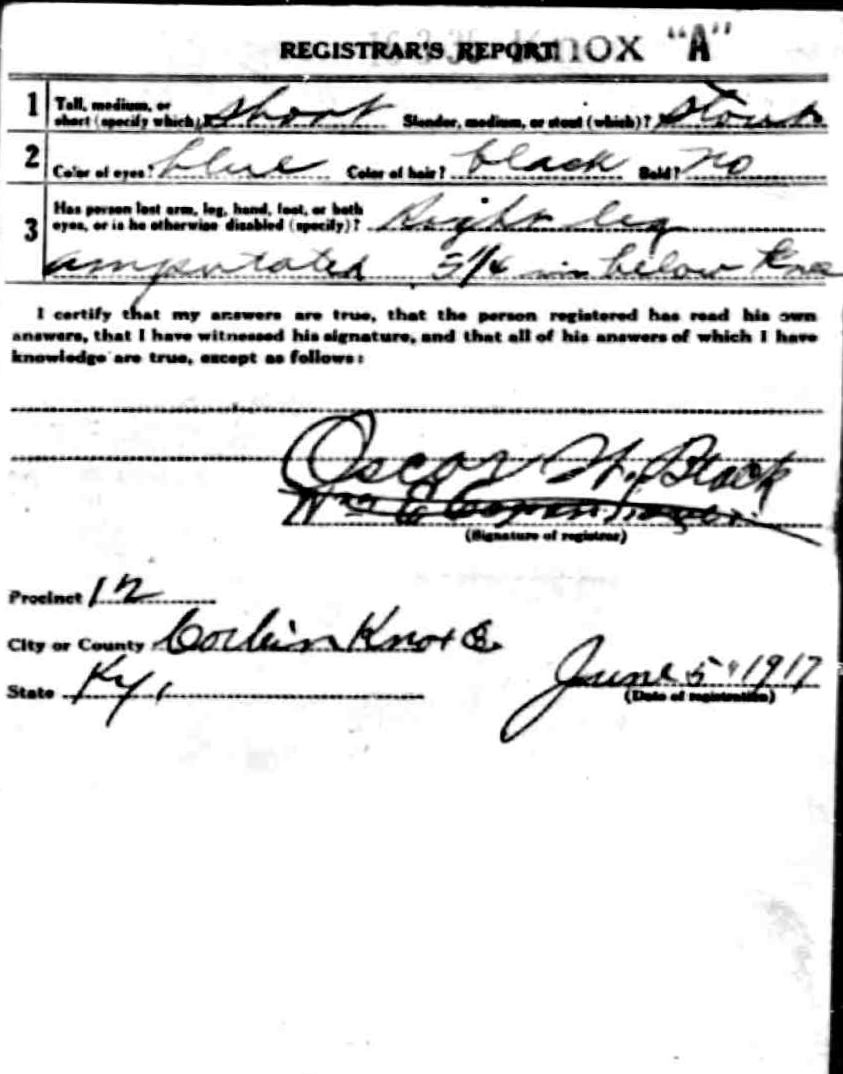 REGISTRAR'S REPORT Knox "A"
1 Tall, medium, or short (specify which)? short Slender, medium, or stout (which)? stout
2 Color of eyes? blue Color of hair? black Bald? no
3 Has person lost arm, leg, hand, foot, or both eyes, or is he otherwise disabled (specify)? Right leg
amputated 3 1/4 in below Knee
I certify that my answers are true, that the person registered has read his own
answers, that I have witnessed his signature, and that all of his answers of which I have
knowledge are true, except as follows:
Oscar W. Black
Wm E
(Signature of registrar)
Precinct 12
City or County Corbin Knox Co.
State Ky,
June 5" 1917
(Date of registration)